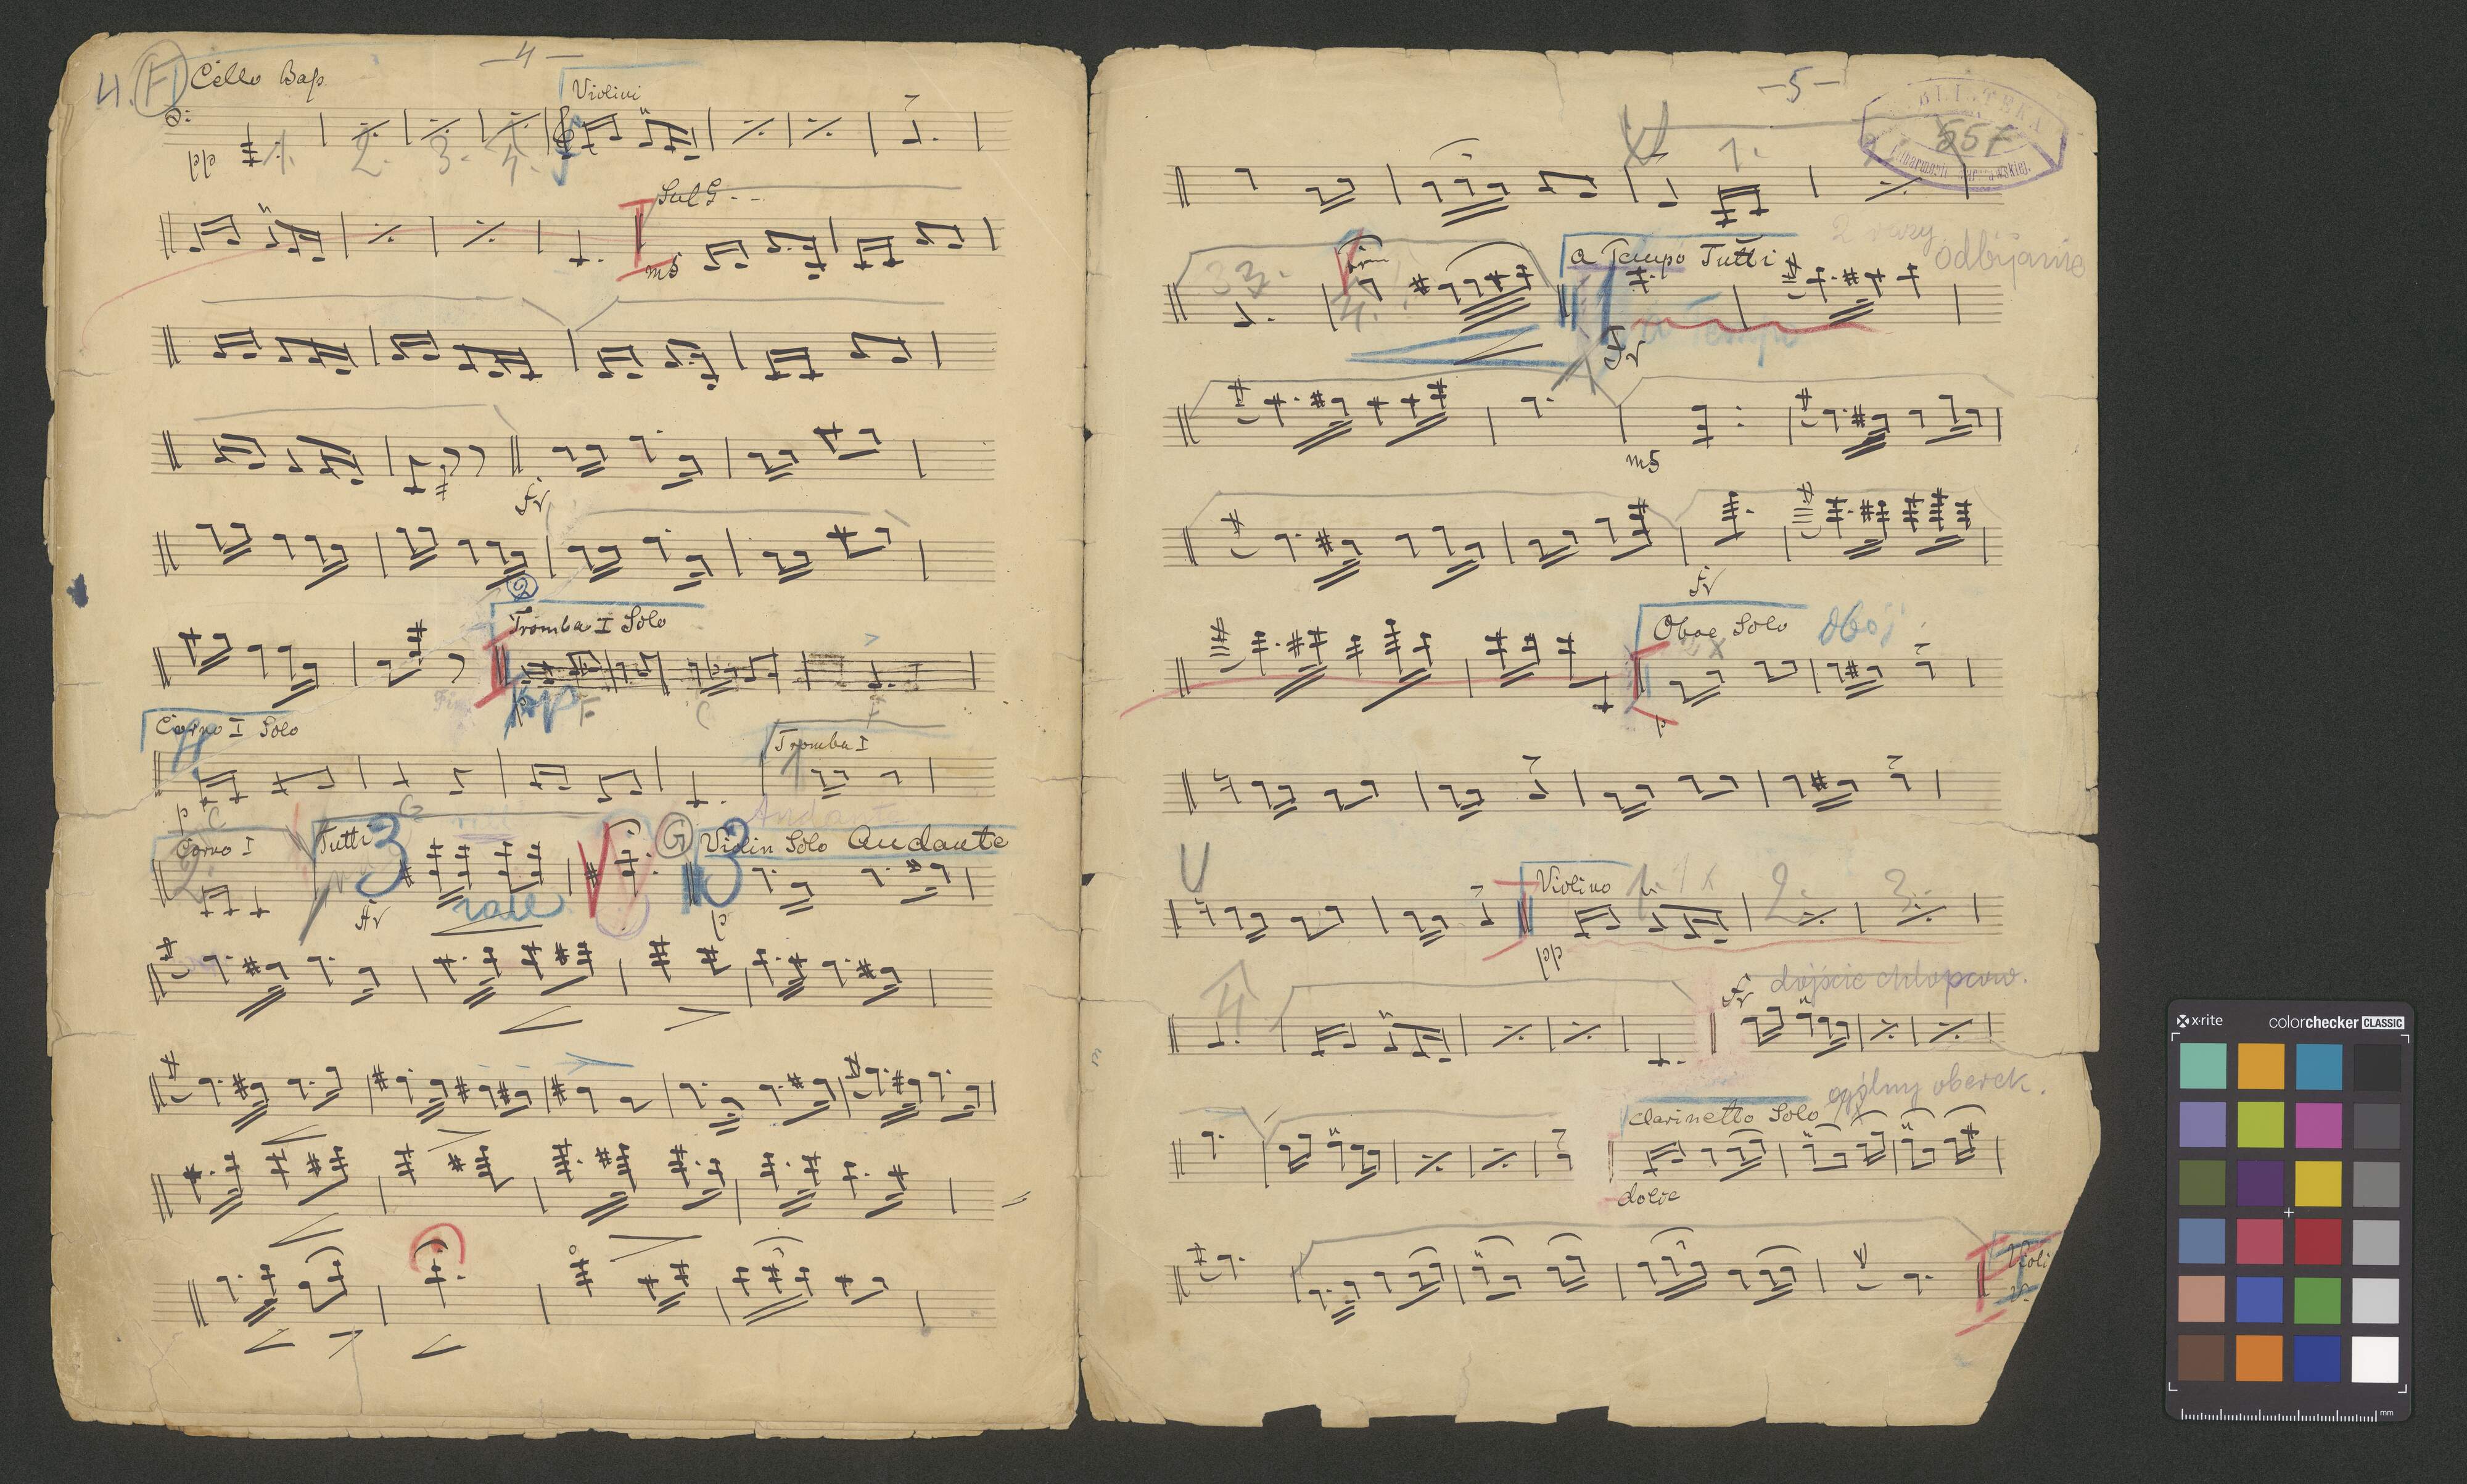 4. F Cello Bas. - 4 -
Violini
pp 1. 2. 3. 4.
Sul G - -
mf
fr
2
Tromba I Solo
p F C F
Corno I Solo
Tromba I
p C 1
G
Andante
Corno I Tutti 3 G Violin Solo Andante
2.
rall
p
- 5 -
BIBLIOTEKA
557
Filharmonii Warszawskiej.
1.
2 razy
33. a Tempo Tutti odbijanie
4.
Tempo
mf
Oboe Solo Obój
2x
p
Violino 1. 1x 2. 3.
pp
4. dojście chłopców.
ogólny oberek.
Clarinetto Solo
dolce
Violi
x-rite colorchecker CLASSIC
mm